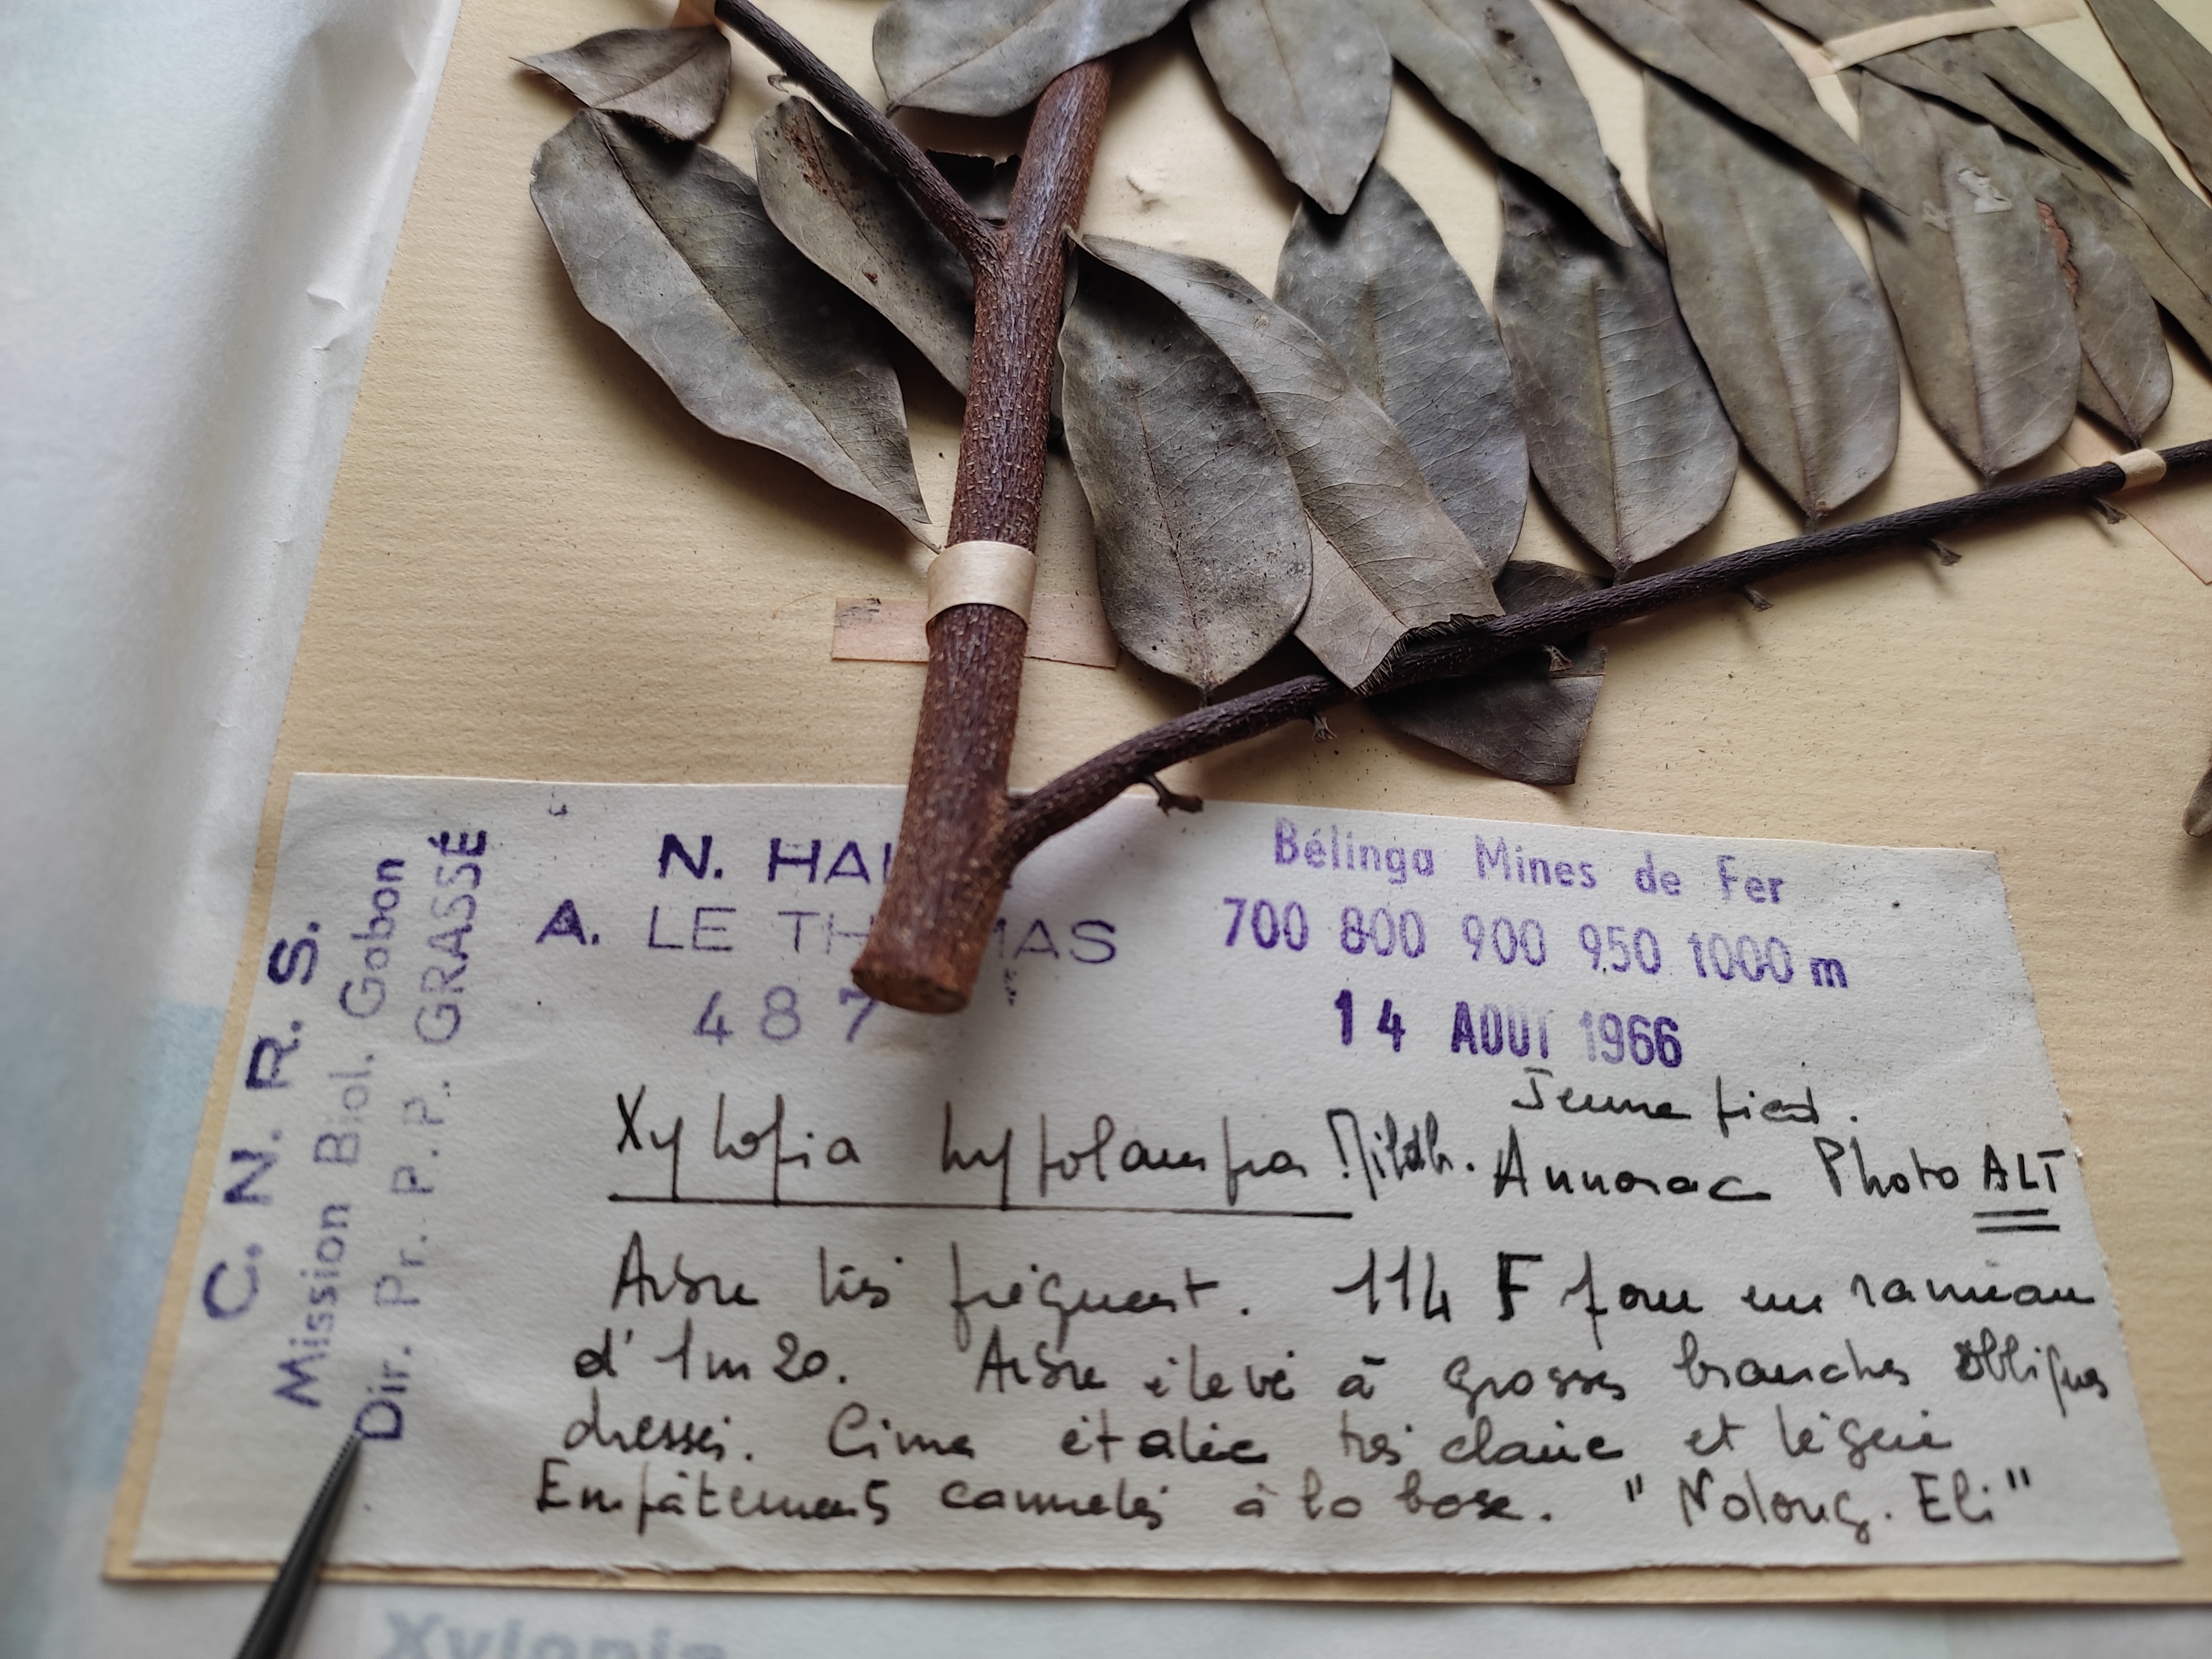 C. N. R. S.
Mission Biol. Gabon
Dir. Pr. P. P. GRASSÉ
N. HA
A. LE TH MAS
487
Bélinga Mines de Fer
700 800 900 950 1000 m
14 AOUT 1966
Jeune pied.
Xylopia hypolampra Mildbr. Annonac Photo ALT
Arbre très fréquent. 114 F pour un rameau
d'1m20. Arbre élevé à grosses branches obliques
dressés. Cime étalée très claire et légère
Empâtements cannelés à la base. "Ndong. Eli"
Xylopia